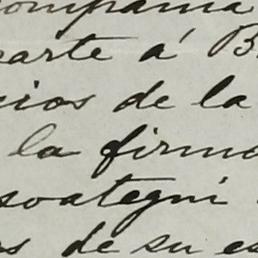 compañia
parte á B
cios de la
la firma
soategui
s de su es